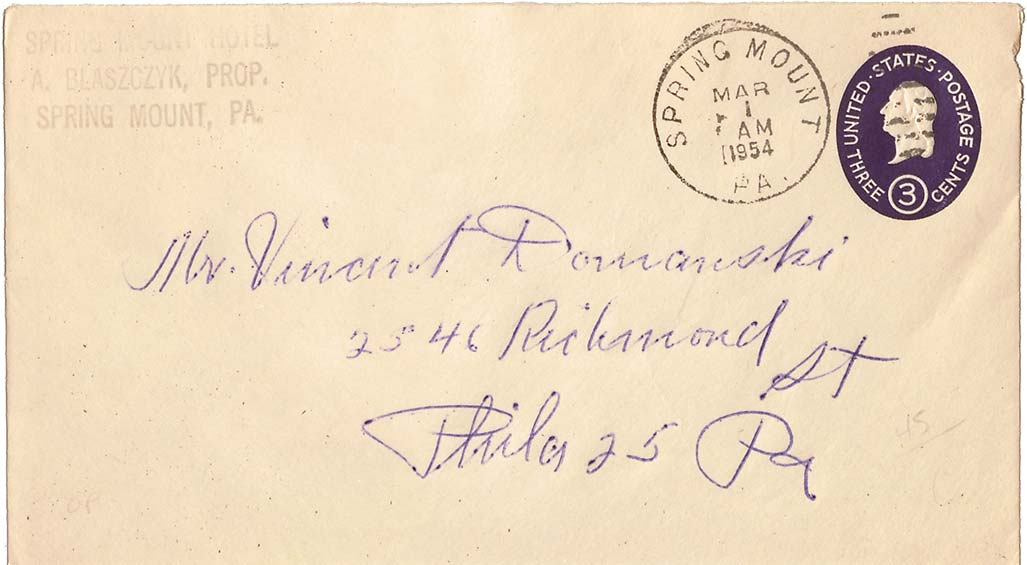 SPRING MOUNT HOTEL
A. BLASZCZYK, PROP.
SPRING MOUNT, PA.
SPRING MOUNT
MAR
1
AM
1954
PA.
UNITED · STATES · POSTAGE
THREE 3 CENTS
Mr. Vincent Domanski
2546 Richmond
St
Phila 25 Pa
45